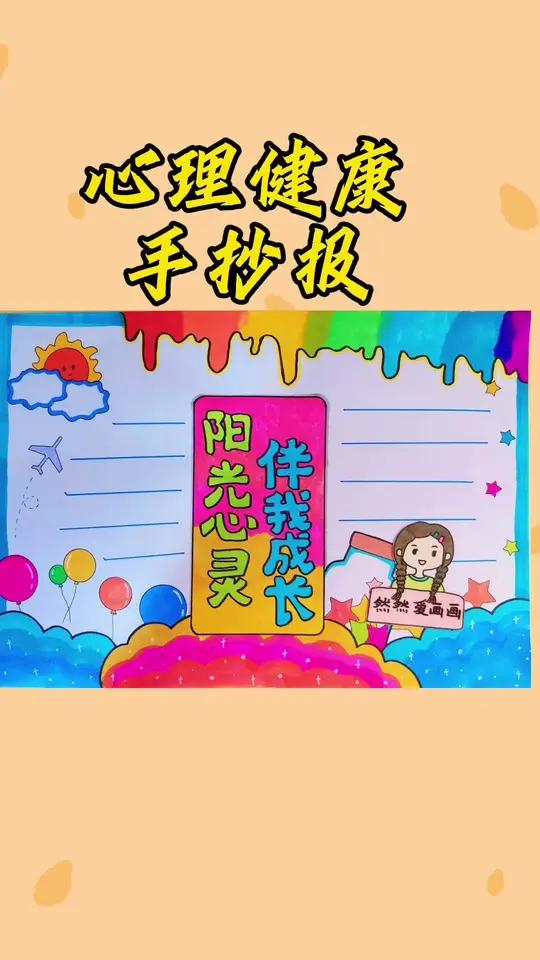 心理健康
手抄报
阳光心灵
伴我成长
然然爱画画